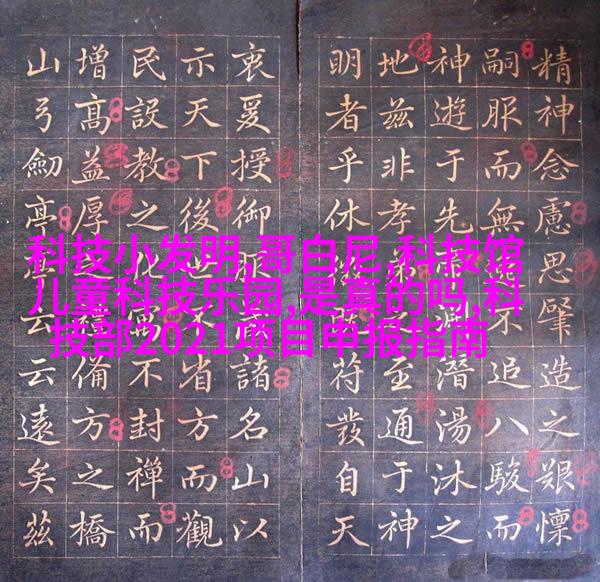 科技小发明,哥白尼,科技馆
儿童科技乐园,是真的吗,科
技部2021项目申报指南
精神念慮思肇造之艱懍
嗣服而無不追八駿而
神遊于先潛湯沐之
地茲非孝弟之至通于神
明者乎休符發自天
衷爰授御服諸名山以
示天下後世省方而觀
民設教之化不封禪而
增高益厚備方之橋
山弓劒亭云云遠矣茲